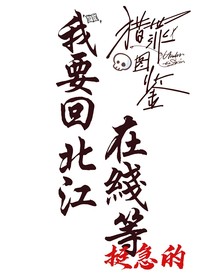 猎冰
图鉴
我要回北江
在綫等
挺急的